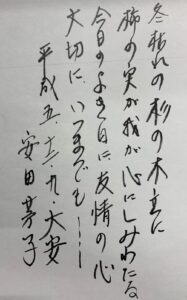 冬枯れの杉の木立に
柿の実が我が心にしみわたる
今日のよき日に友情の心
大切に、いつまでも……
平成五.十二.九.大安
安田芳子